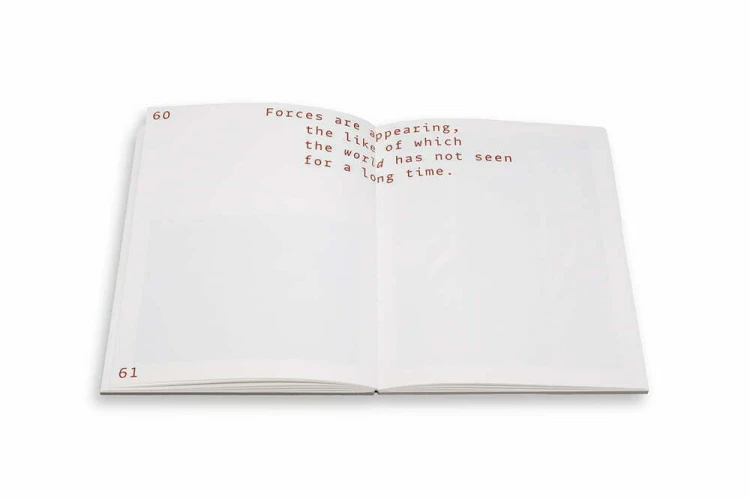 60
Forces are appearing,
the like of which
the world has not seen
for a long time.
61